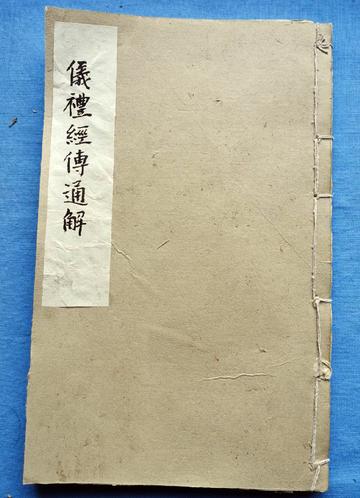 儀禮經傳通解